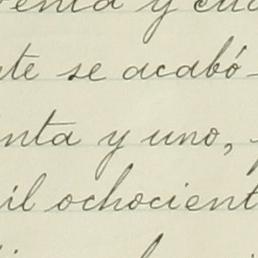 y
te se acabó
nta y uno,
il ochocient